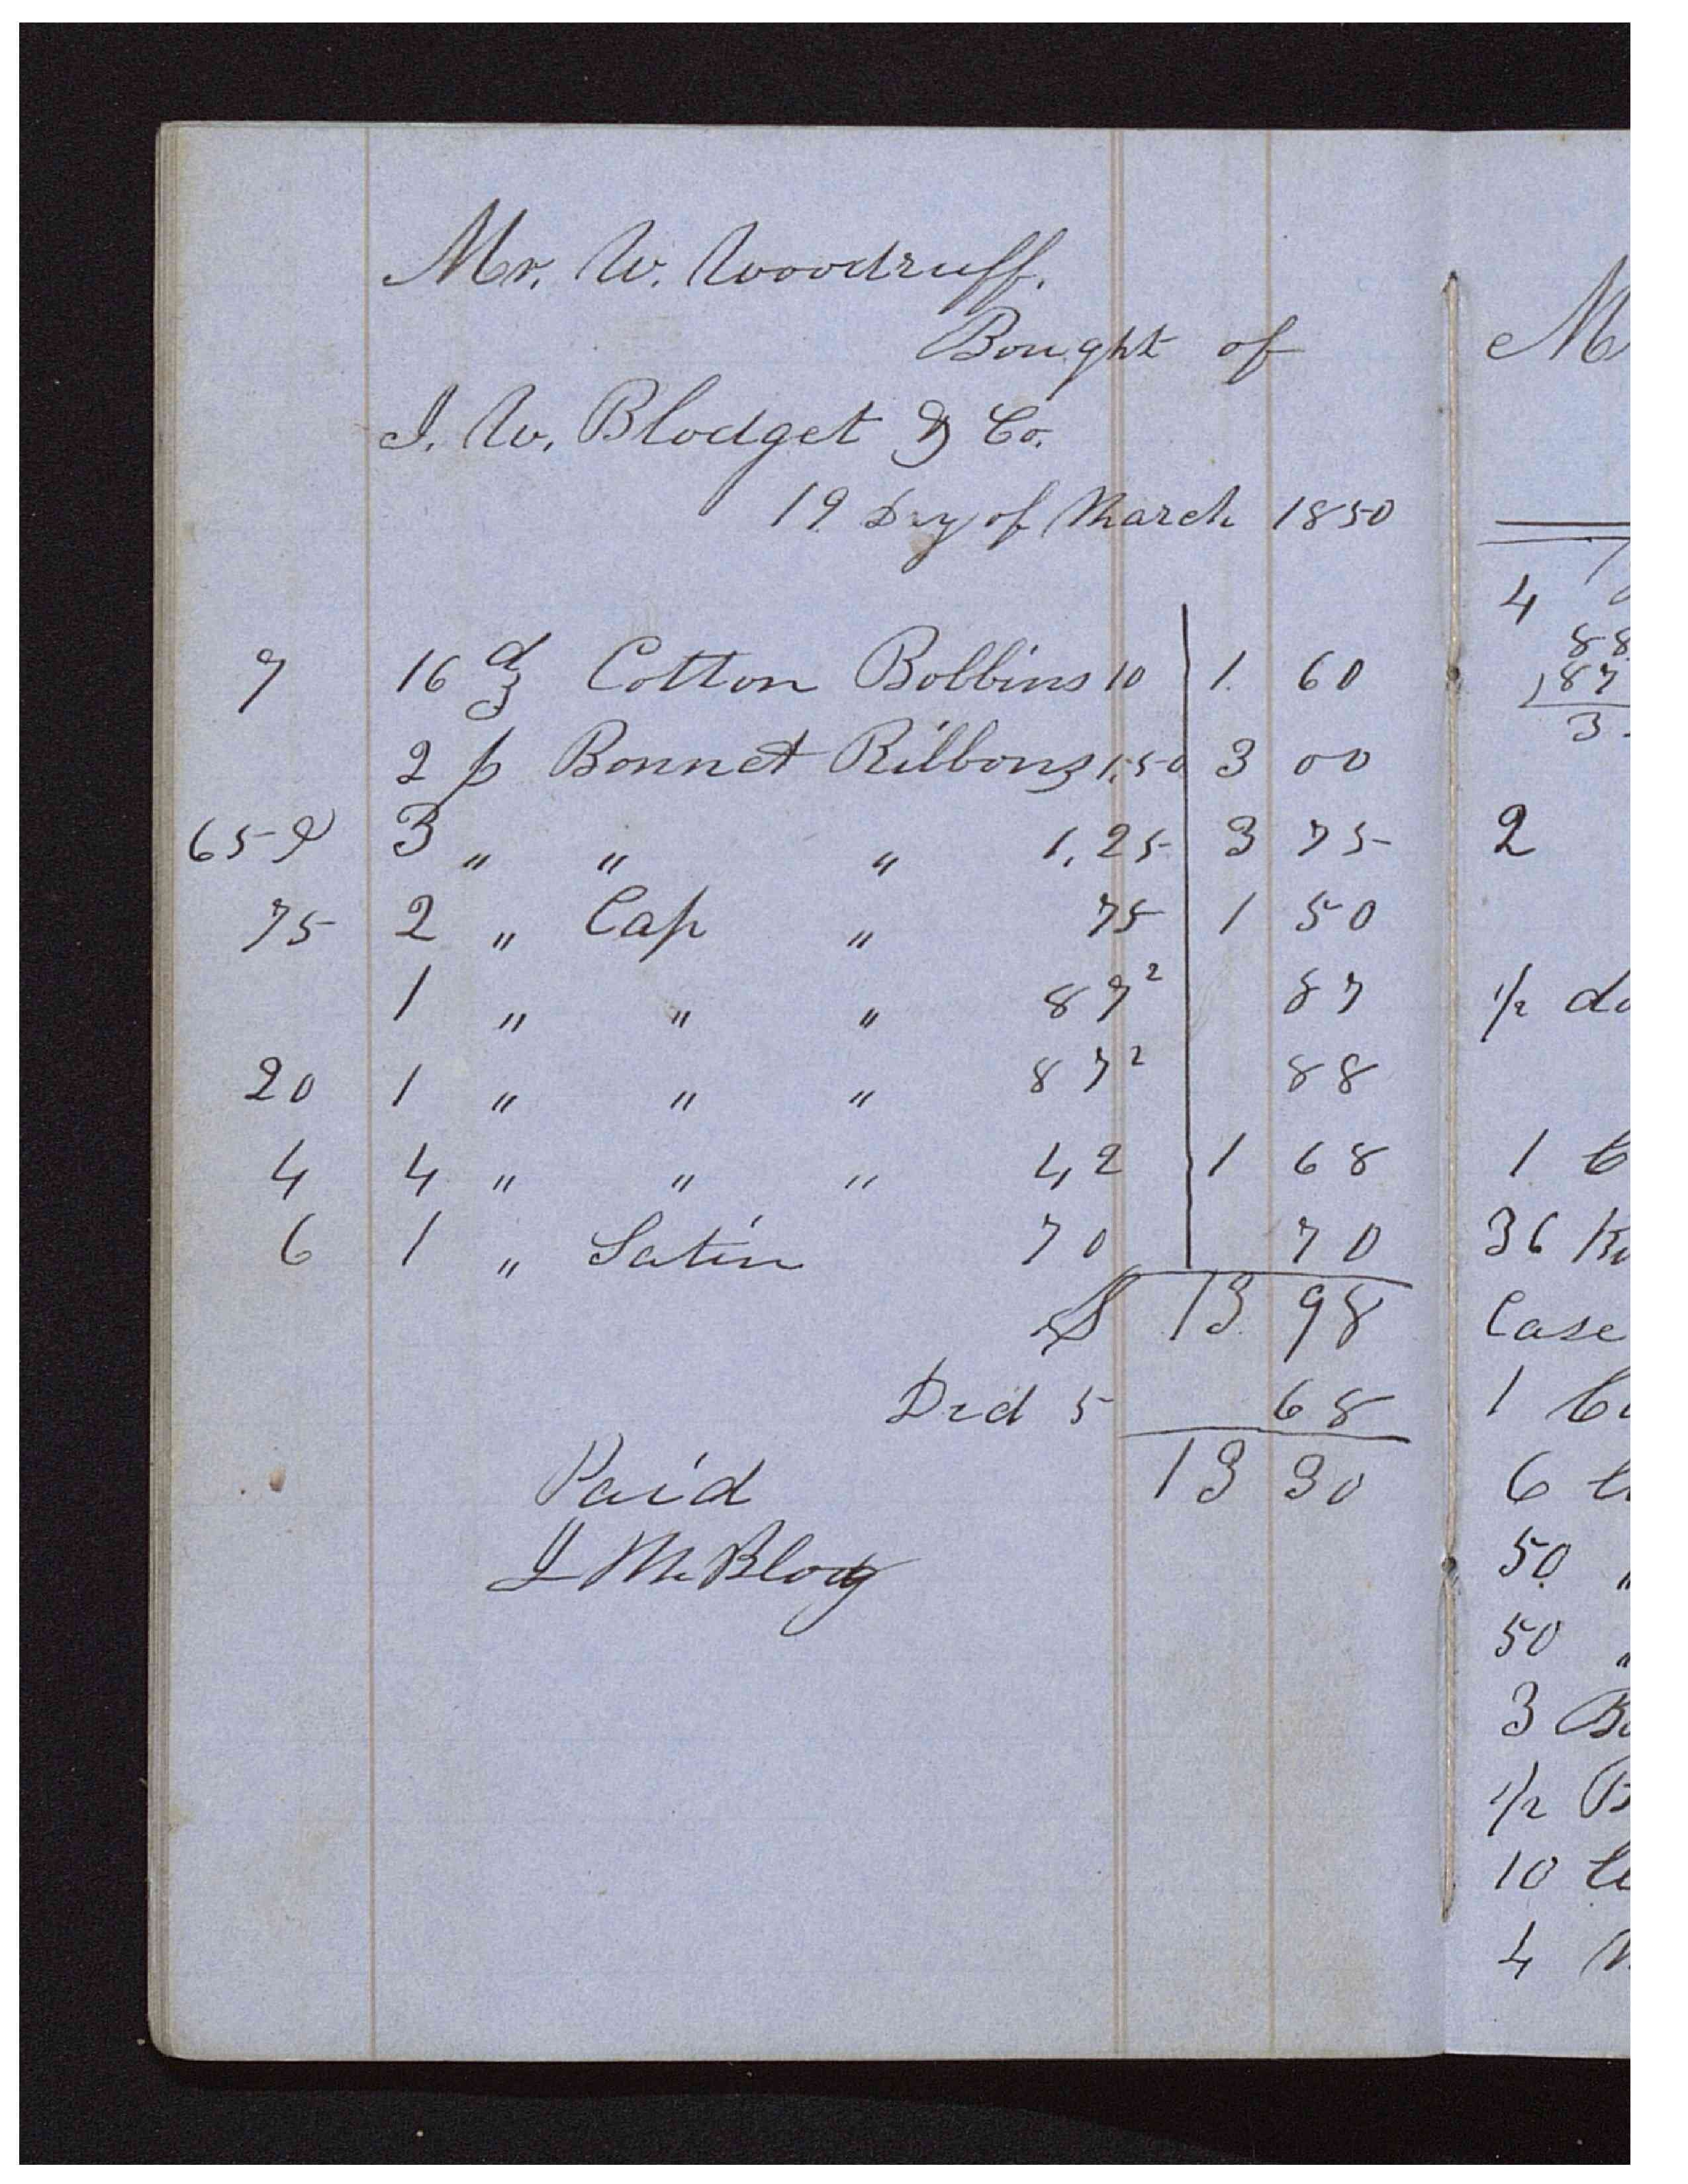 Mr. W. Woodruff.
Bought of
J. W. Blodget & Co.
19 Day of March 1850
7 16 dz Cotton Bobbins 10 1. 60
2 p Bonnet Ribbons 1.50 3 00
65 3 " " " 1.25 3 75
75 2 " Cap " 75 1 50
1 " " " 87² 87
20 1 " " " 87² 88
4 4 " " " 42 1 68
6 1 " Satin 70 70
$ 13 98
Ded 5 68
13 30
Paid
M
4
88
87
3
2
1/2
1
36
Case
1
6
50 "
50 "
3
1/2
10
4